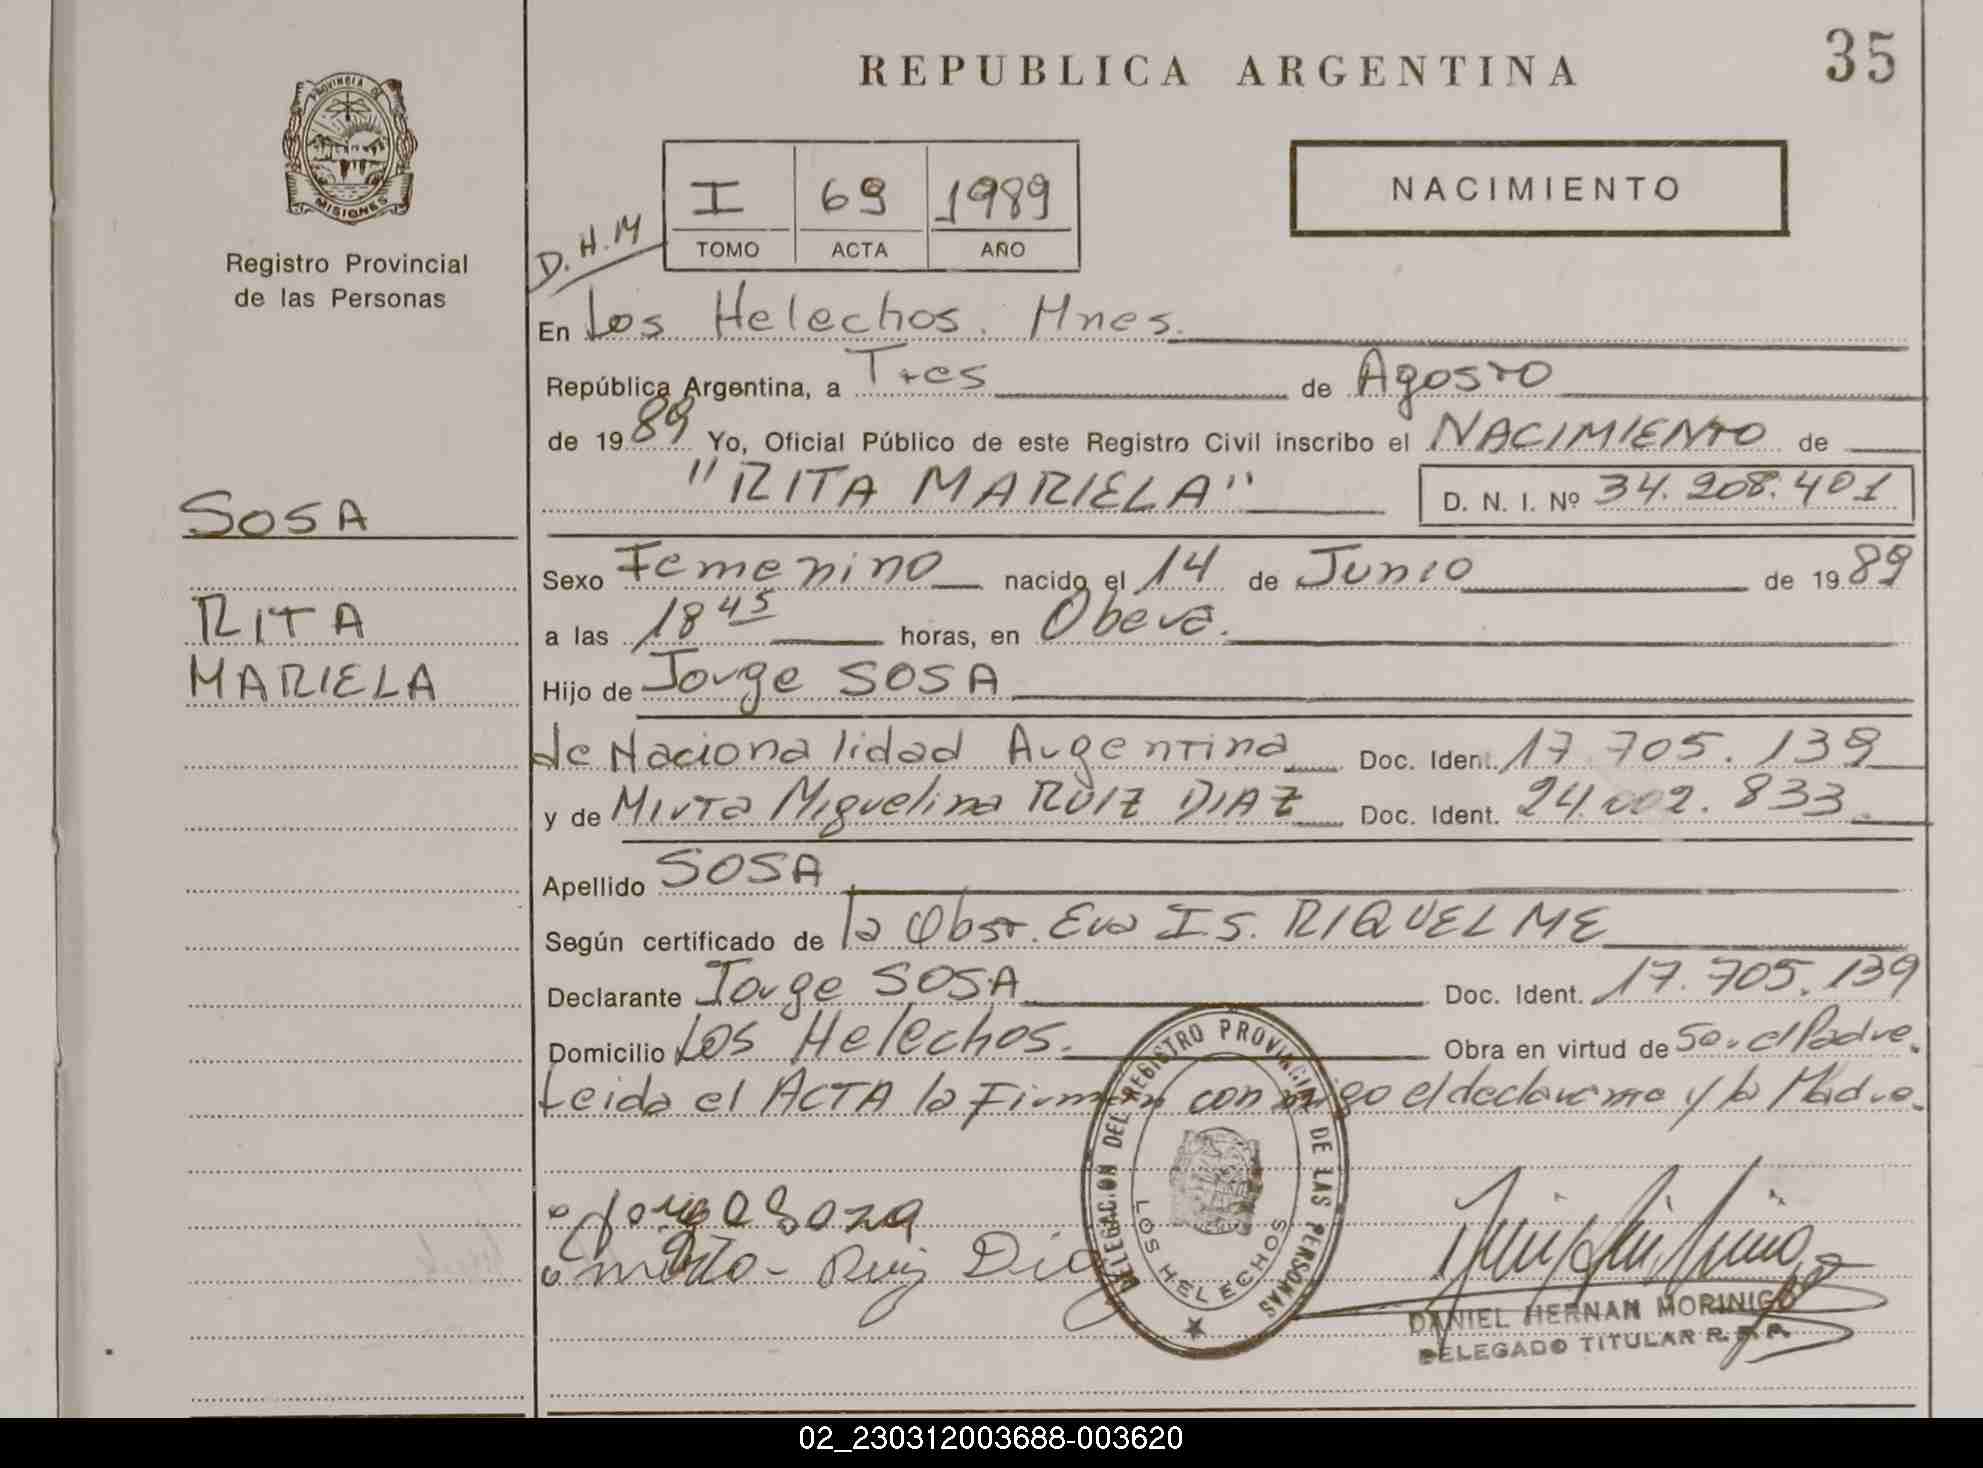 REPUBLICA ARGENTINA
35
PROVINCIA DE
MISIONES
Registro Provincial
de las Personas
I 69 1989
TOMO ACTA AÑO
NACIMIENTO
D. H. M
En Los Helechos. Mnes.
República Argentina, a Tres de Agosto
de 1989 Yo, Oficial Público de este Registro Civil inscribo el NACIMIENTO de
"RITA MARIELA" D. N. I. Nº 34.208.401
SOSA
RITA
MARIELA
Sexo Femenino nacido el 14 de Junio de 1989
a las 18 45 horas, en Obera.
Hijo de Jorge SOSA
de Nacionalidad Argentina Doc. Ident. 17.705.139
y de Mirta Miguelina RUIZ DIAZ Doc. Ident. 24.002.833.
Apellido SOSA
Según certificado de la Obst. Eva IS. RIQUELME
Declarante Jorge SOSA Doc. Ident. 17.705.139
Domicilio Los Helechos. Obra en virtud de So. el Padre.
Leida el ACTA la Firman con migo el declarante y la Madre.
Jorge Soza
Mirta - Ruiz Diaz
DELEGACION DEL REGISTRO PROVINCIAL DE LAS PERSONAS
LOS HELECHOS
DANIEL HERNAN MORINIGO
DELEGADO TITULAR R.P.P.
02_230312003688-003620